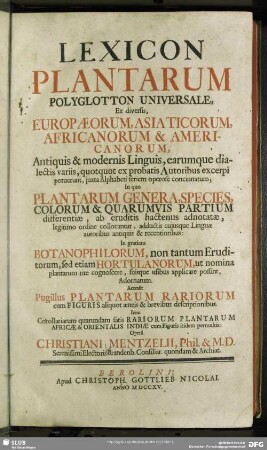 LEXICON
PLANTARUM
POLYGLOTTON UNIVERSALE,
Ex diversis,
EUROPÆORUM, ASIATICORUM,
AFRICANORUM & AMERI-
CANORUM,
Antiquis & modernis Linguis, earumque dia-
lectis variis, quotquot ex probatis Autoribus excerpi
potuerunt, juxta Alphabeti seriem operose concinnatum,
In quo
PLANTARUM GENERA, SPECIES,
COLORUM & QUARUMVIS PARTIUM
differentiæ, ab eruditis hactenus adnotatæ,
legitimo ordine collocantur, adductis cujusque Linguæ
autoribus antiquis & recentioribus:
In gratiam
BOTANOPHILORUM, non tantum Erudi-
torum, sed etiam HORTULANORUM, ut nomina
plantarum rite cognoscere, suisque usibus applicare possint,
Adornatum.
Accessit
Pugillus PLANTARUM RARIORUM
cum FIGURIS aliquot æneis & brevibus descriptionibus.
Item
Corollariarum quarundam satis RARIORUM PLANTARUM
AFRICÆ & ORIENTALIS INDIÆ cum Figuris itidem permultis:
Operâ
CHRISTIANI MENTZELII, Phil. & M.D.
Serenissimi Electoris Brandenb. Consiliar. quondam & Archiat.
BEROLINI,
Apud CHRISTOPH. GOTTLIEB NICOLAI.
ANNO MDCCXV.
SLUB
DFG